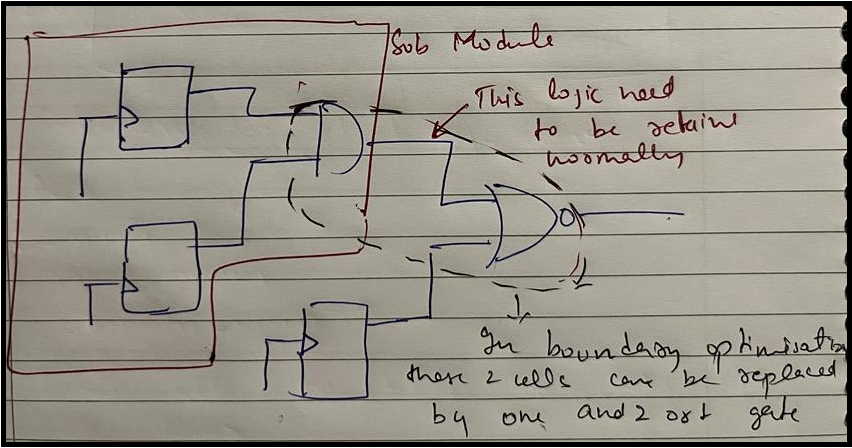 Sub Module
This logic need
to be retain
normally
In boundary optimisation
these 2 cells can be replaced
by one and2 or1 gate